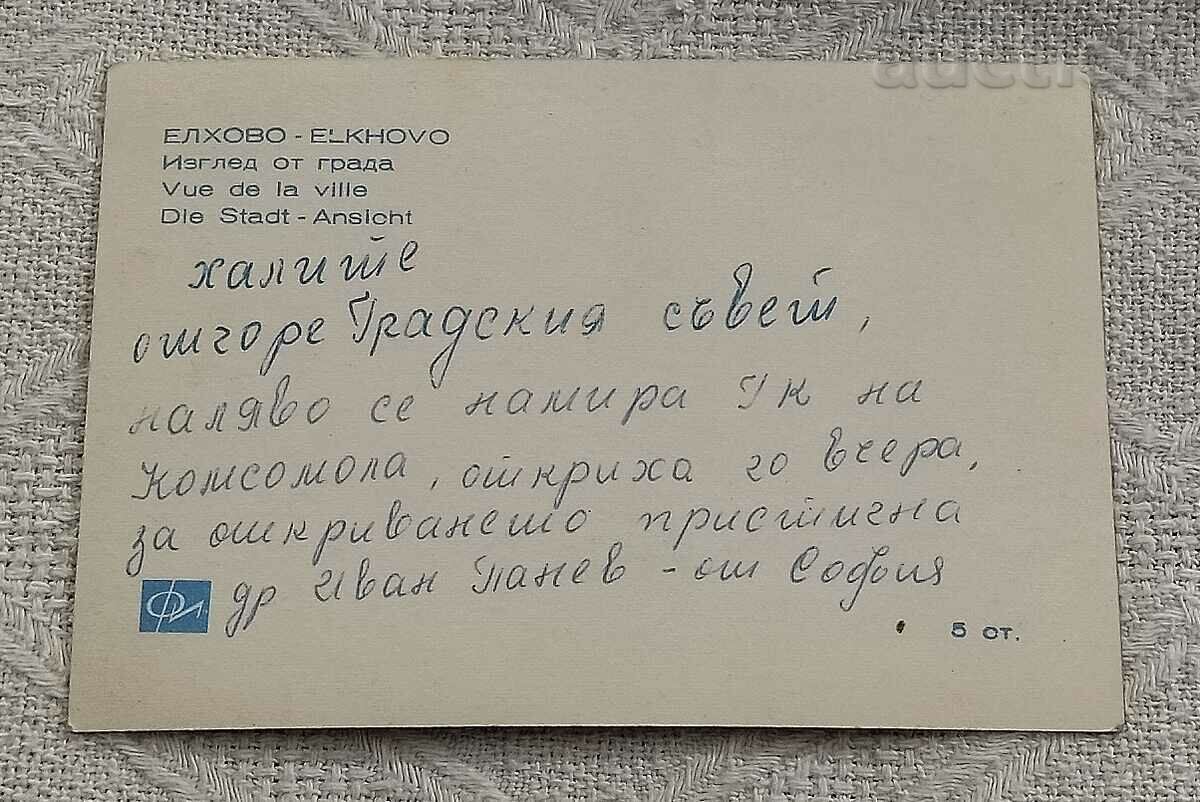 ЕЛХОВО - ELKHOVO
Изглед от града
Vue de la ville
Die Stadt - Ansicht
халите
отгоре Градския съвет,
наляво се намира ГК на
Комсомола, откриха го вчера,
за откриването пристигна
др Иван Панев - от София
5 ст.